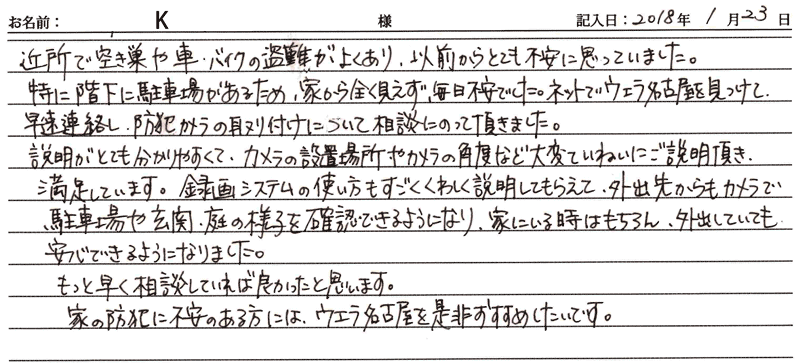 お名前： K 様 記入日：2018年 1月23日
近所で空き巣や車・バイクの盗難がよくあり、以前からとても不安に思っていました。
特に階下に駐車場があるため、家から全く見えず、毎日不安でした。ネットでウエラ名古屋を見つけて、
早速連絡し、防犯カメラの取り付けについて相談にのって頂きました。
説明がとても分かりやすくて、カメラの設置場所やカメラの角度など大変ていねいにご説明頂き、
満足しています。録画システムの使い方もすごくくわしく説明してもらえて、外出先からもカメラで
駐車場や玄関、庭の様子を確認できるようになり、家にいる時はもちろん、外出していても
安心できるようになりました。
もっと早く相談していれば良かったと思います。
家の防犯に不安のある方には、ウエラ名古屋を是非おすすめしたいです。